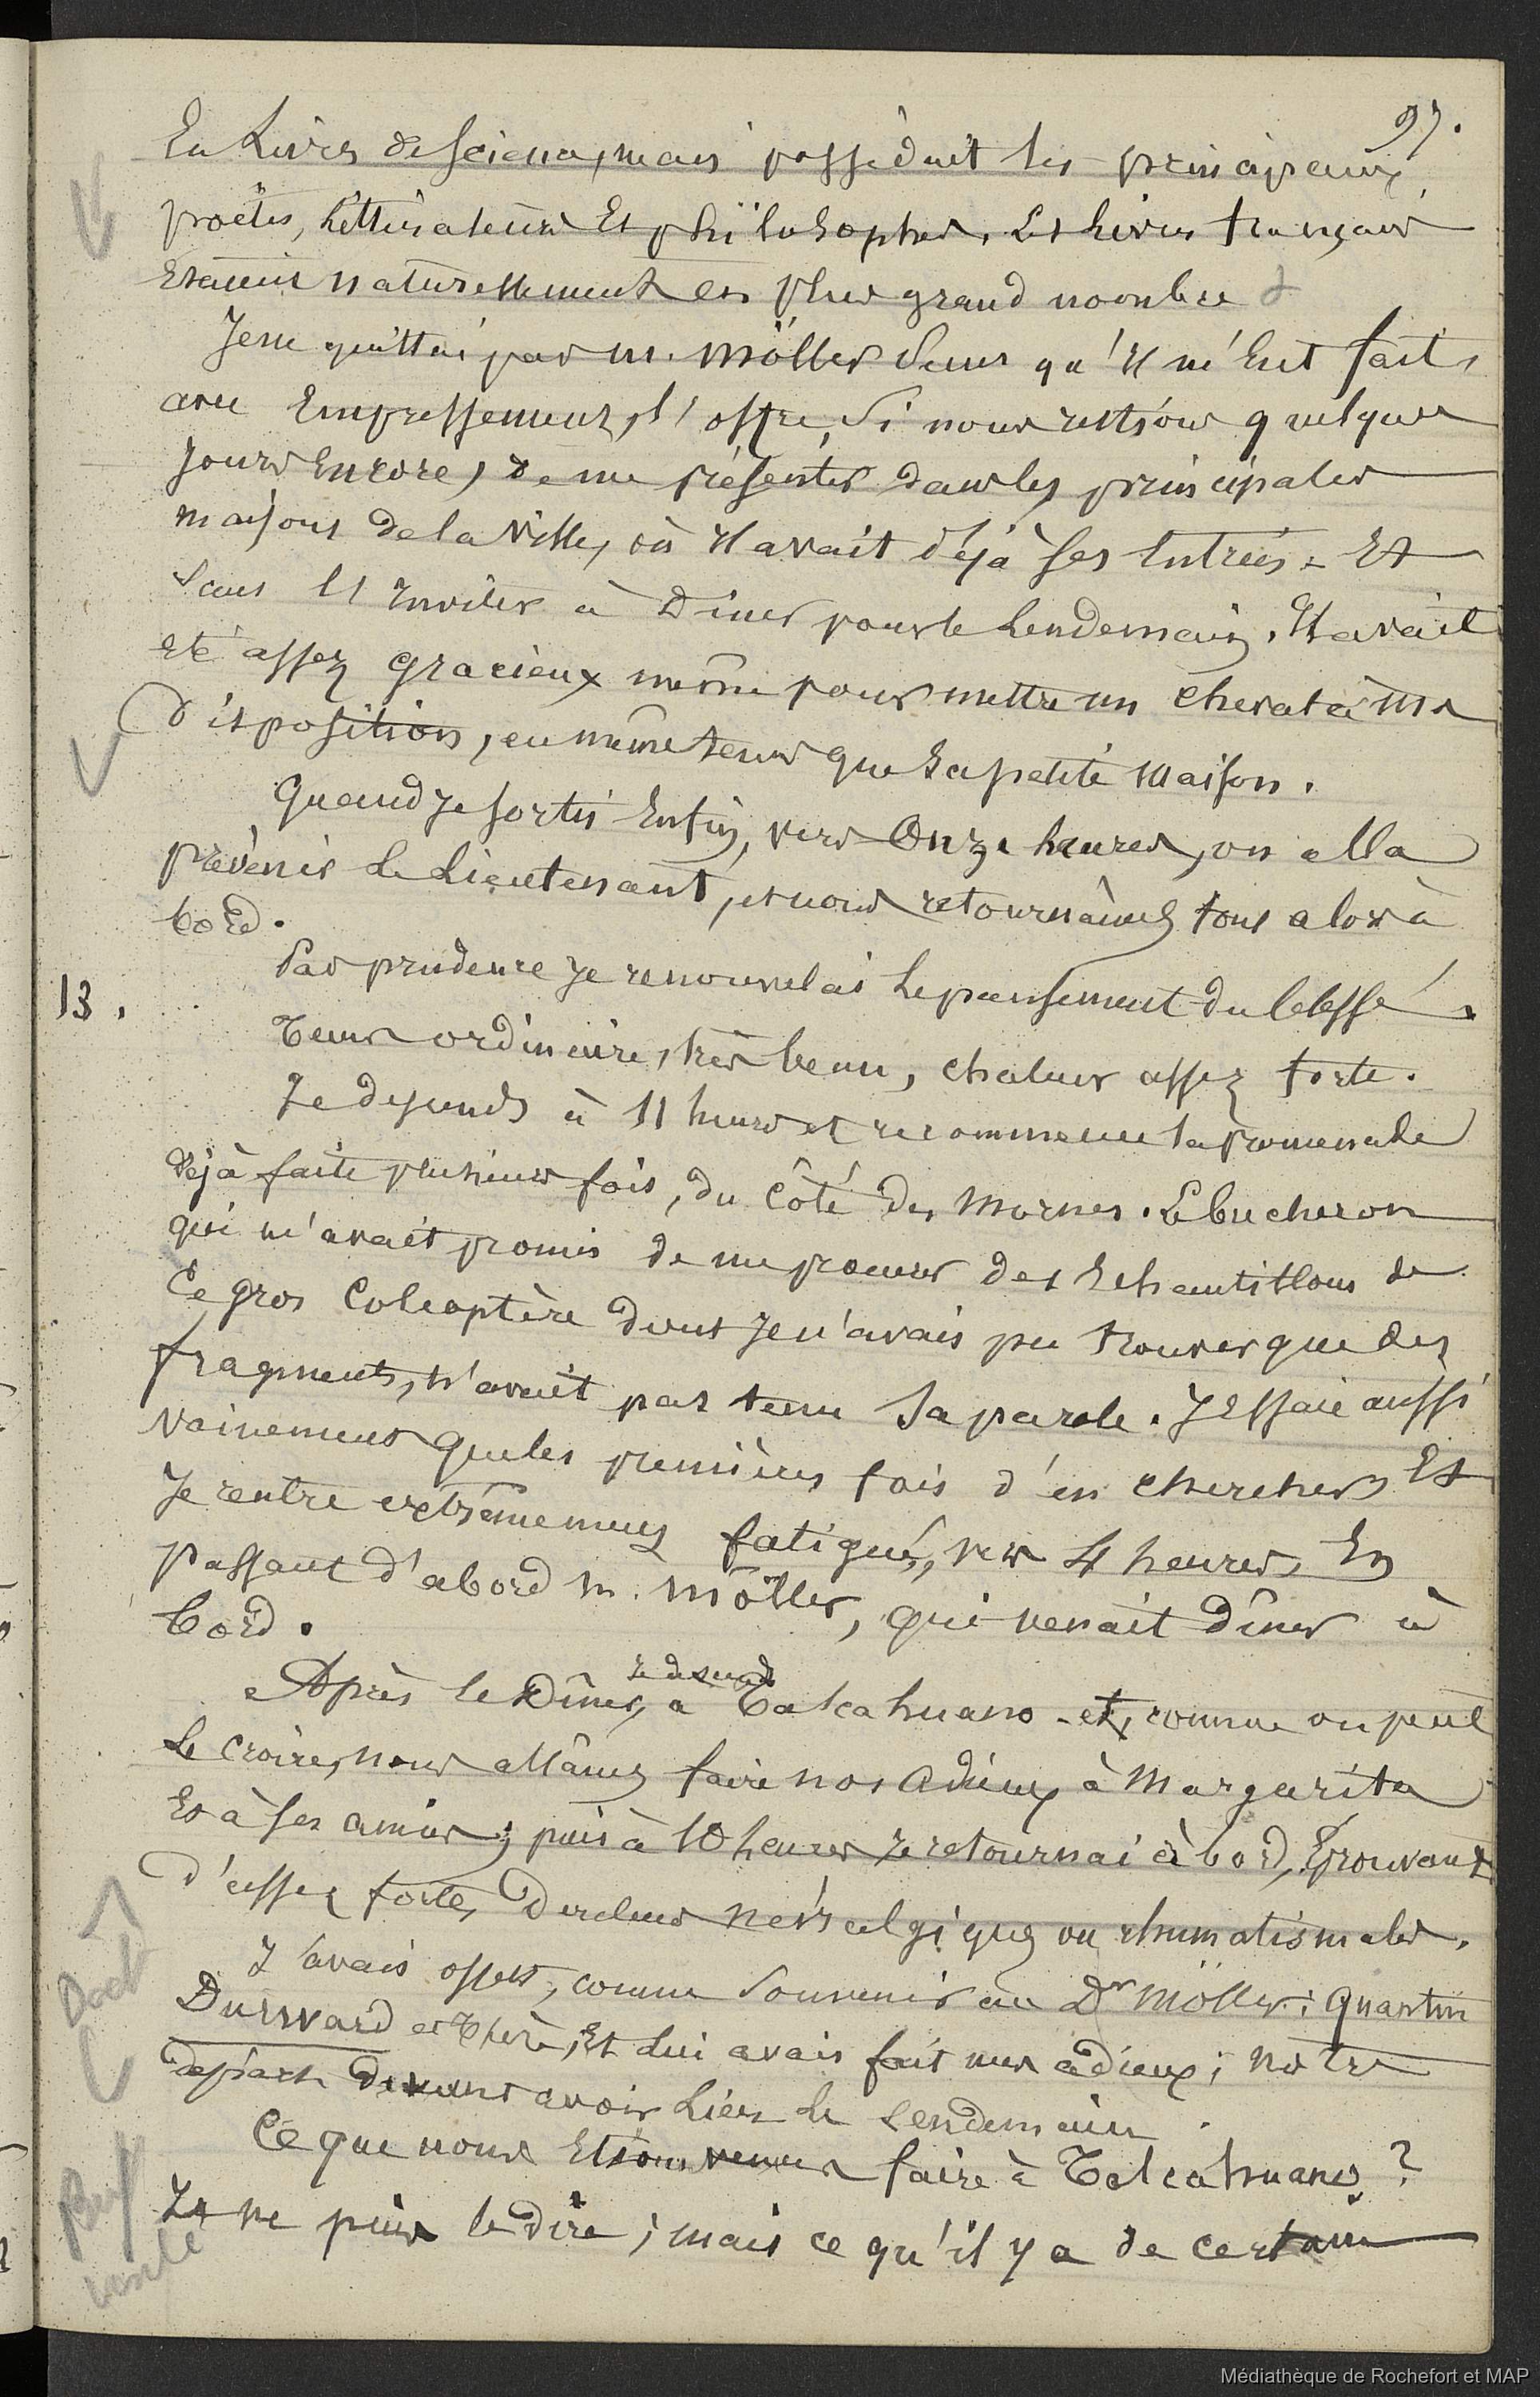 97.
En Livres de Science, mais possédait les principaux
poètes, Littérateurs Et philosophes. Les Livres français
Etaient naturellement en plus grand nombre
Je ne quittai pas M. Möller sans qu'Il m'Eut fait,
avec Empressement, l'offre, Si nous restions quelques
Jours Encore, de me présenter dans les principales
maisons de la Ville, où Il avait déjà Ses Entrées. Et
sans l'Inviter à Diner pour le Lendemain. Il avait
Eté assez gracieux même pour mettre un Cheval à ma
disposition, en même tems que Sa petite Maison.
Quand Je Sortis Enfin, vers Onze heures, on alla
prévenir Le Lieutenant, et nous retournâmes tous alors à
bord.
Par prudence Je renouvelai Le pansement du blessé.
13.
Tems ordinaire, très beau, Chaleur assez forte.
Je descends à 11 heures et recommence la promenade
déjà faite plusieurs fois, du Côté des Mornes. Le bucheron
qui m'avait promis de me procurer des Echantillons de
Ce gros Coléoptère dont Je n'avais pu trouver que des
fragments, n'avait pas tenu Sa parole. J'Essaie aussi
vainement que les premières fois d'en Chercher, Et
Je rentre extrêmement fatigué, vers 4 heures, En
passant d'abord M. Möller, qui venait Dîner à
bord.
Je descends
Après le Dîner, à Talcahuano et, comme on peut
Le Croire, nous allâmes faire nos Adieux à Margarita
Et à Ses amies; puis à 10 heures Je retournai à bord, Eprouvant
d'assez fortes Douleurs névralgiques ou rhumatismales.
J'avais offert, comme Souvenir au Dr Möller: Quentin
Durward et Et Lui avais fait mes adieux; notre
départ devant avoir Lieu Le Lendemain.
Ce que nous Etions venus faire à Talcahuano?
Je ne puis le dire; mais ce qu'il y a de Certain